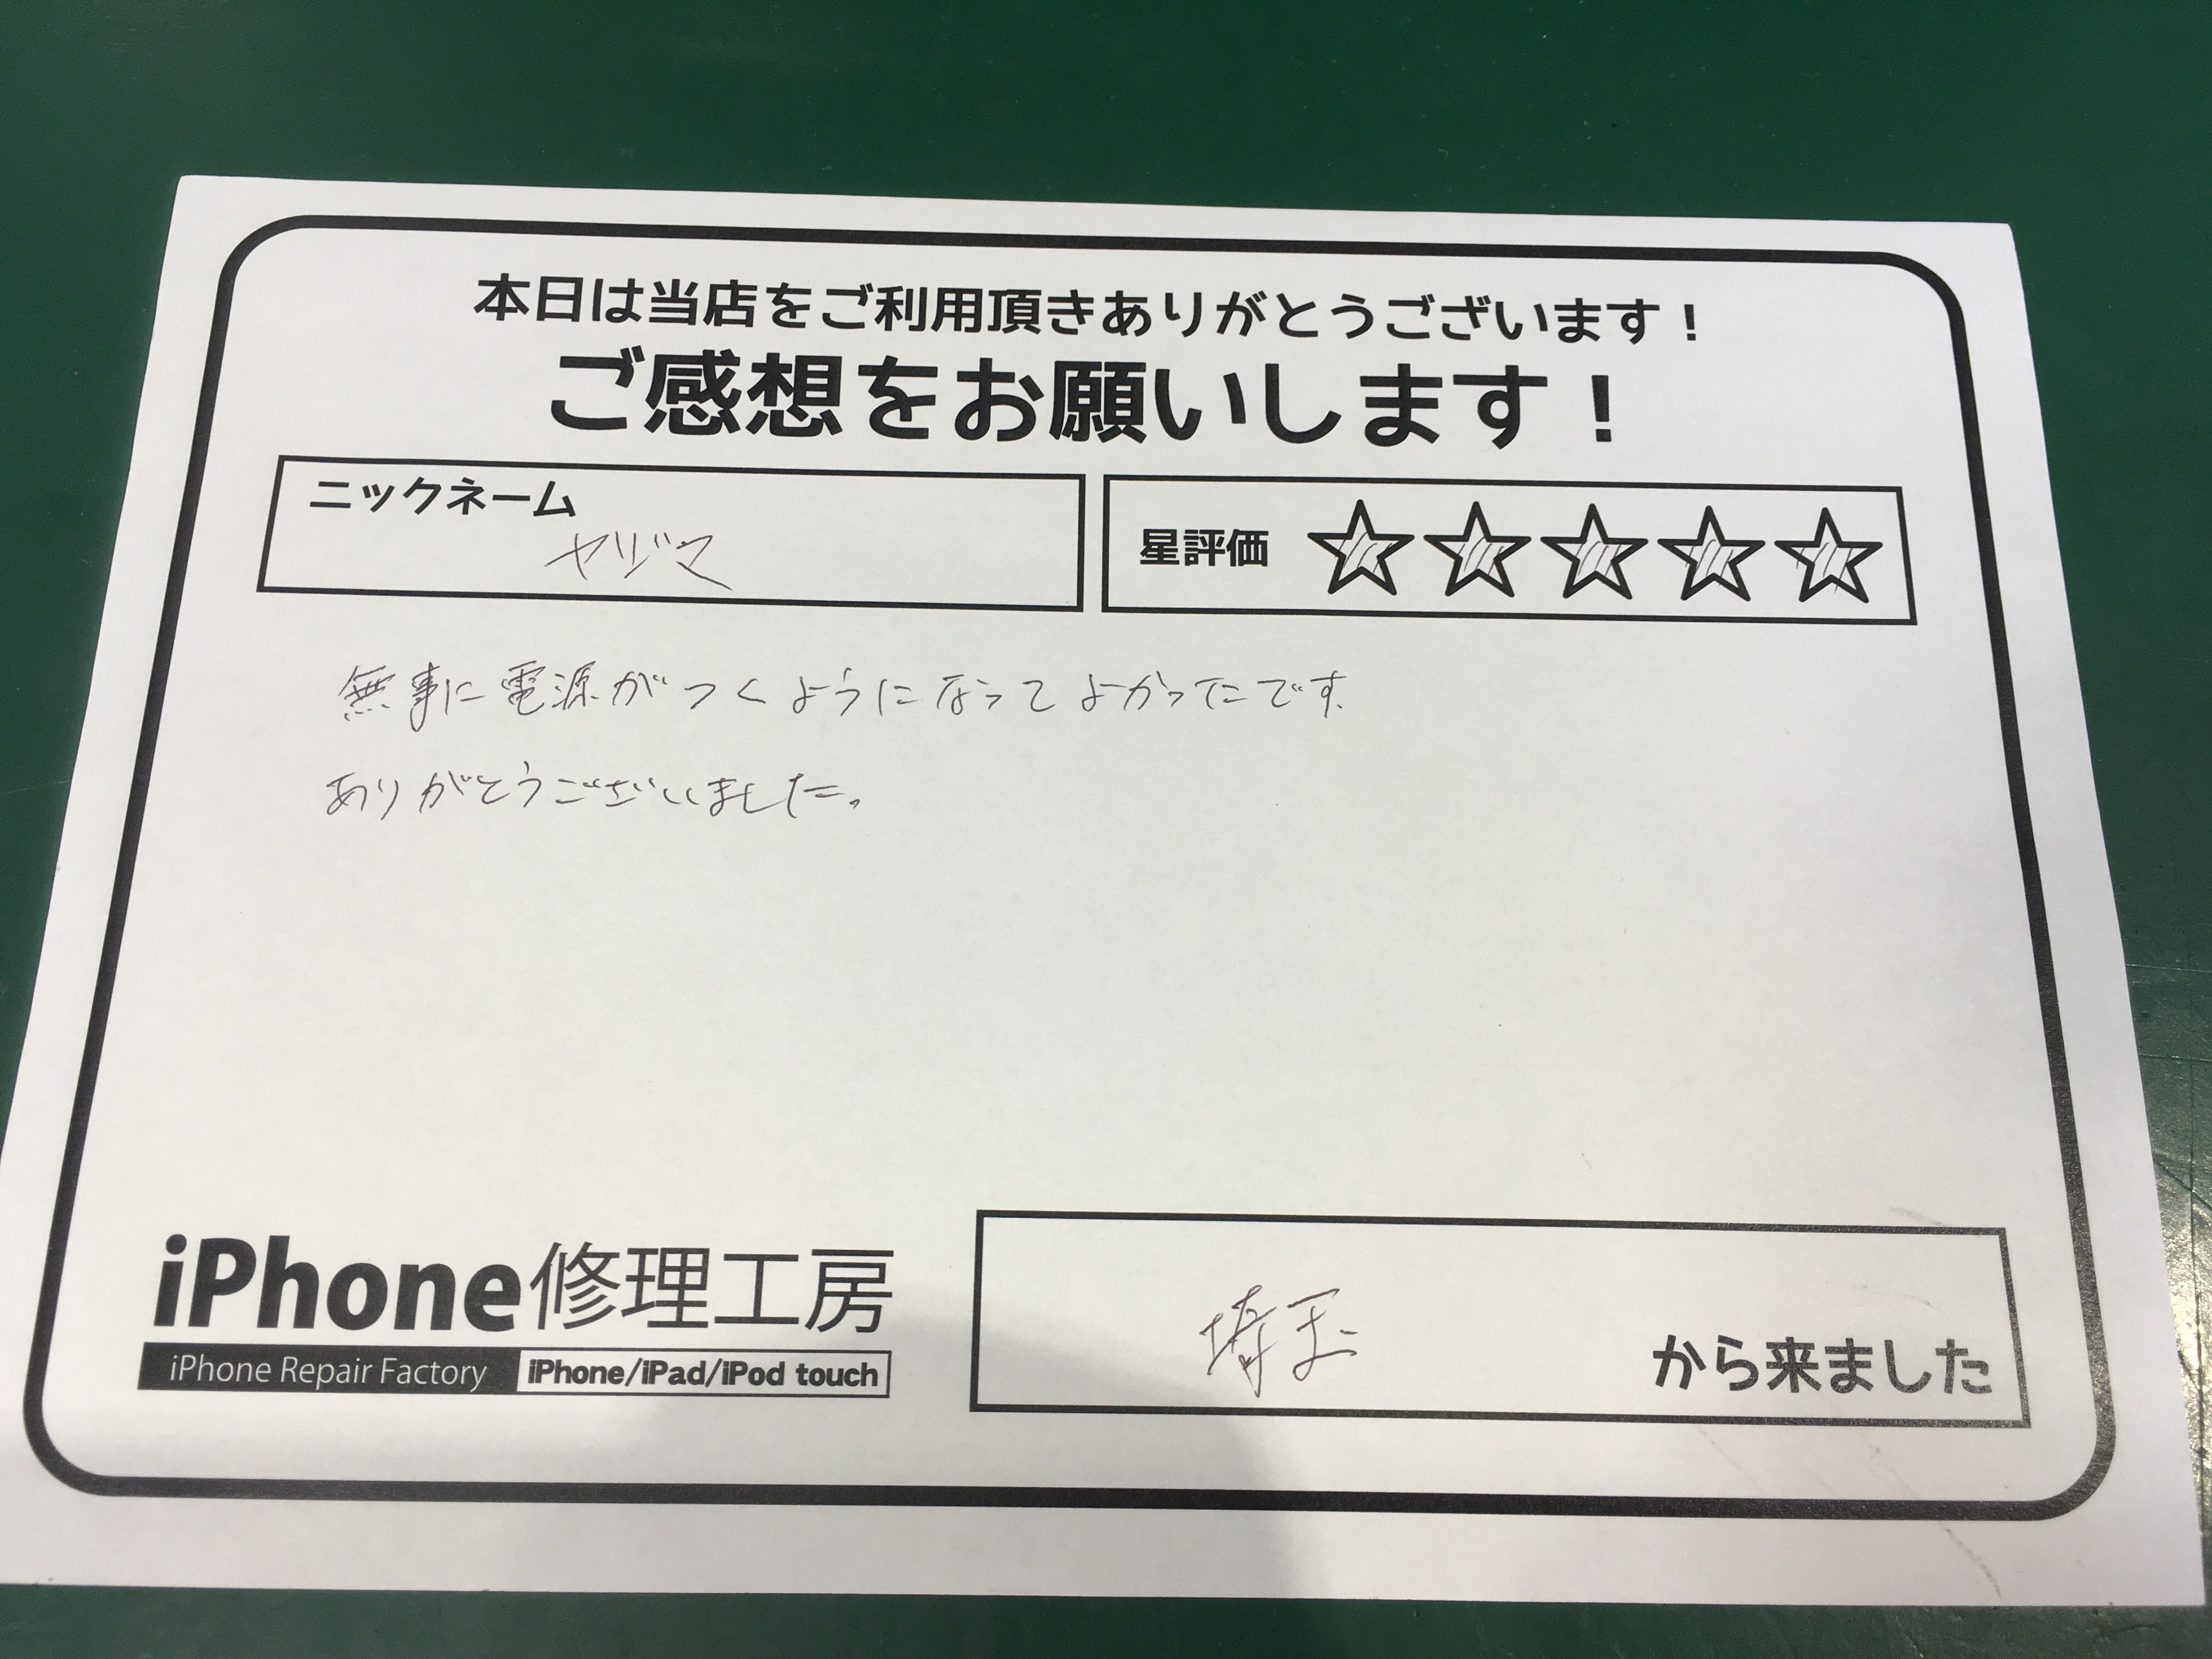 本日は当店をご利用頂きありがとうございます！
ご感想をお願いします！
ニックネーム
ヤジマ
星評価 ☆☆☆☆☆
無事に電源がつくようになってよかったです.
ありがとうございました。
iPhone修理工房
iPhone Repair Factory iPhone/iPad/iPod touch
埼玉 から来ました